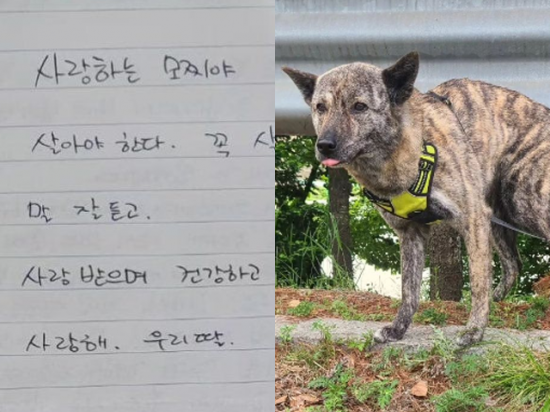 사랑하는 모찌야
살아야 한다. 꼭
말 잘 듣고.
사랑 받으며 건강하고
사랑해. 우리 딸.